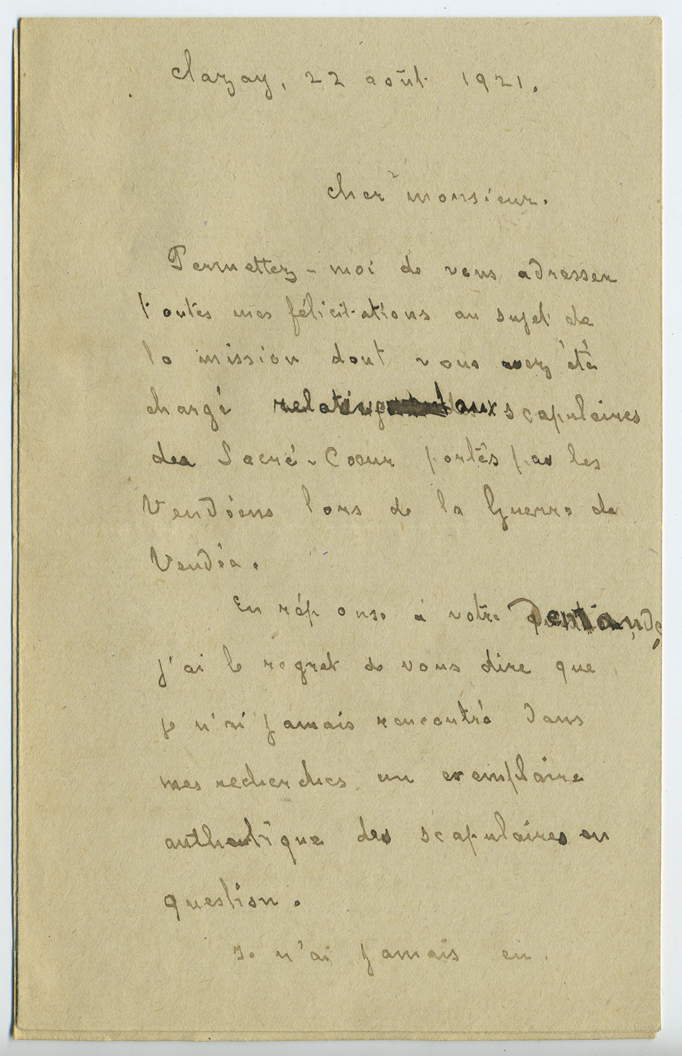 Clazay, 22 août 1921.
Cher monsieur.
Permettez-moi de vous adresser
toutes mes félicitations au sujet de
la mission dont vous avez été
chargé relative aux scapulaires
des Sacré-Coeur portés par les
Vendéens lors de la Guerre de
Vendée.
En réponse à votre demande,
j'ai le regret de vous dire que
je n'ai jamais rencontré dans
mes recherches un exemplaire
authentique des scapulaires en
question.
Je n'ai jamais eu